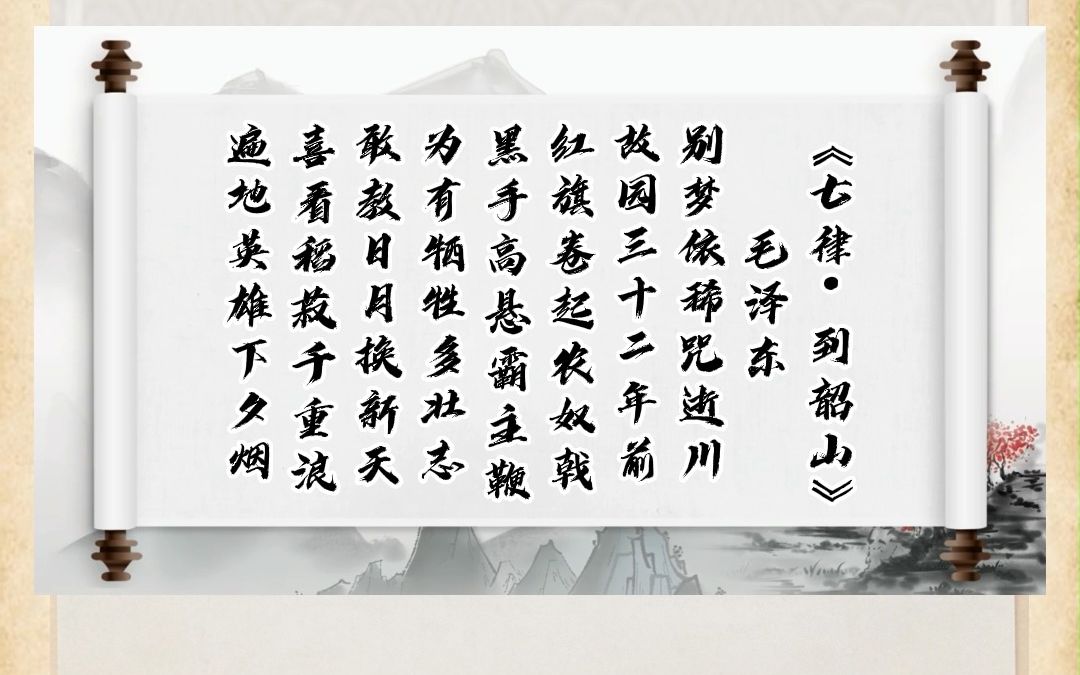 《七律·到韶山》
毛泽东
别梦依稀咒逝川
故园三十二年前
红旗卷起农奴戟
黑手高悬霸主鞭
为有牺牲多壮志
敢教日月换新天
喜看稻菽千重浪
遍地英雄下夕烟